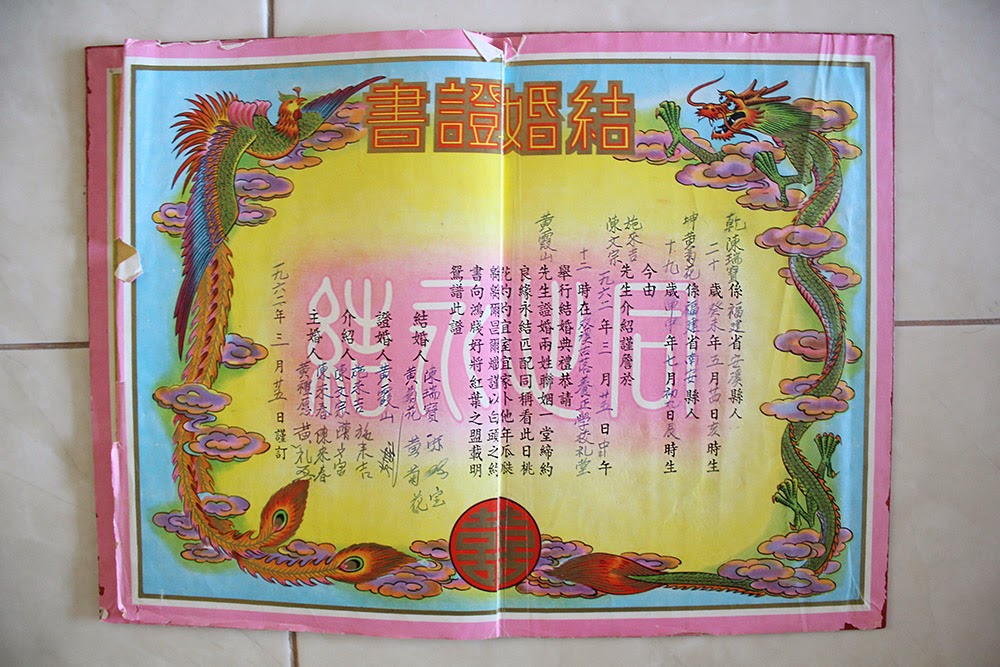 結婚證書
乾陳瑞寶係福建省安溪縣人
二十歲癸未年五月廿日亥時生
坤黃菊花係福建省南安縣人
十九歲甲申年七月初日辰時生
今由
施來吉
陳文宗先生介紹謹詹於
一九六二年三月廿五日中午
十二時在培養正學校礼堂
舉行結婚典禮恭請
黃霞山先生證婚兩姓聯姻一堂締約
良緣永結匹配同稱看此日桃
花灼灼宜室宜家卜他年瓜瓞
緜緜爾昌爾熾謹以白頭之約
書向鴻牋好將紅葉之盟載明
鴛譜此證
結婚人 陳瑞寶
黃菊花 黃菊花
證婚人 黃霞山
介紹人 施來吉 施来吉
陳文宗
主婚人 陳來春 陳來春
黃禮
一九六二年三月廿五日謹訂
囍